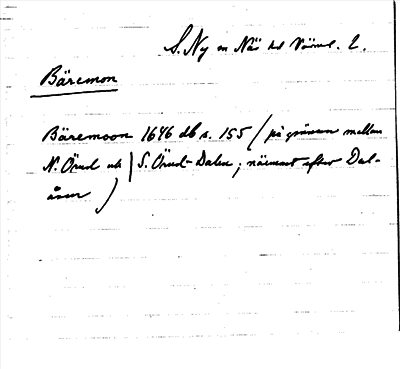 S. Ny sn Näs hd Värml. l.
Bäremon
Bäremoon 1646 db s. 155 (på gränsen mellan
N. Örud och S. Örud-Dalen; närmast efter Dal-
åsen)